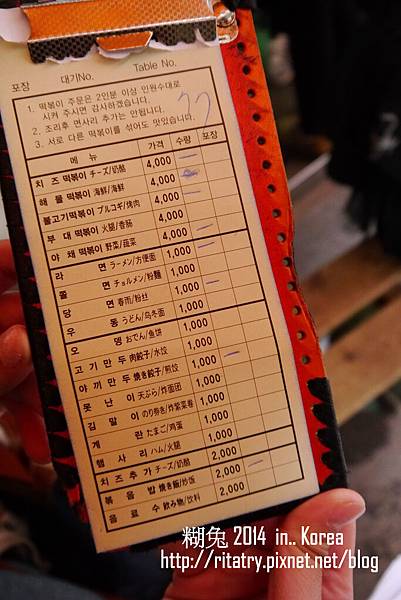 포장 대기No. Table No.
1. 떡볶이 주문은 2인분 이상 인원수대로
시켜 주시면 감사하겠습니다.
2. 조리후 면사리 추가는 안됩니다.
3. 서로 다른 떡볶이를 섞어도 맛있습니다.
77
메뉴 가격 수량 포장
치즈떡볶이 チーズ/奶酪 4,000
해물떡볶이 海鮮/海鲜 4,000
불고기떡볶이 プルコギ/烤肉 4,000
부대떡볶이 火腿/香肠 4,000
야채떡볶이 野菜/蔬菜 4,000
라면 ラーメン/方便面 1,000
쫄면 チョルメン/粉麵 1,000
당면 春雨/粉丝 1,000
우동 うどん/乌冬面 1,000
오뎅 おでん/鱼饼 1,000
고기만두 肉餃子/水饺 1,000
야끼만두 焼き餃子/煎饺 1,000
못난이 天ぷら/炸面团 1,000
김말이 のり巻き/炸紫菜卷 1,000
계란 たまご/鸡蛋 1,000
햄사리 ハム/火腿 1,000
치즈추가 チーズ/奶酪 2,000
볶음밥 焼き飯/炒饭 2,000
음료수 飲み物/饮料 2,000
糊兔 2014 in.. Korea
http://ritatry.pixnet.net/blog